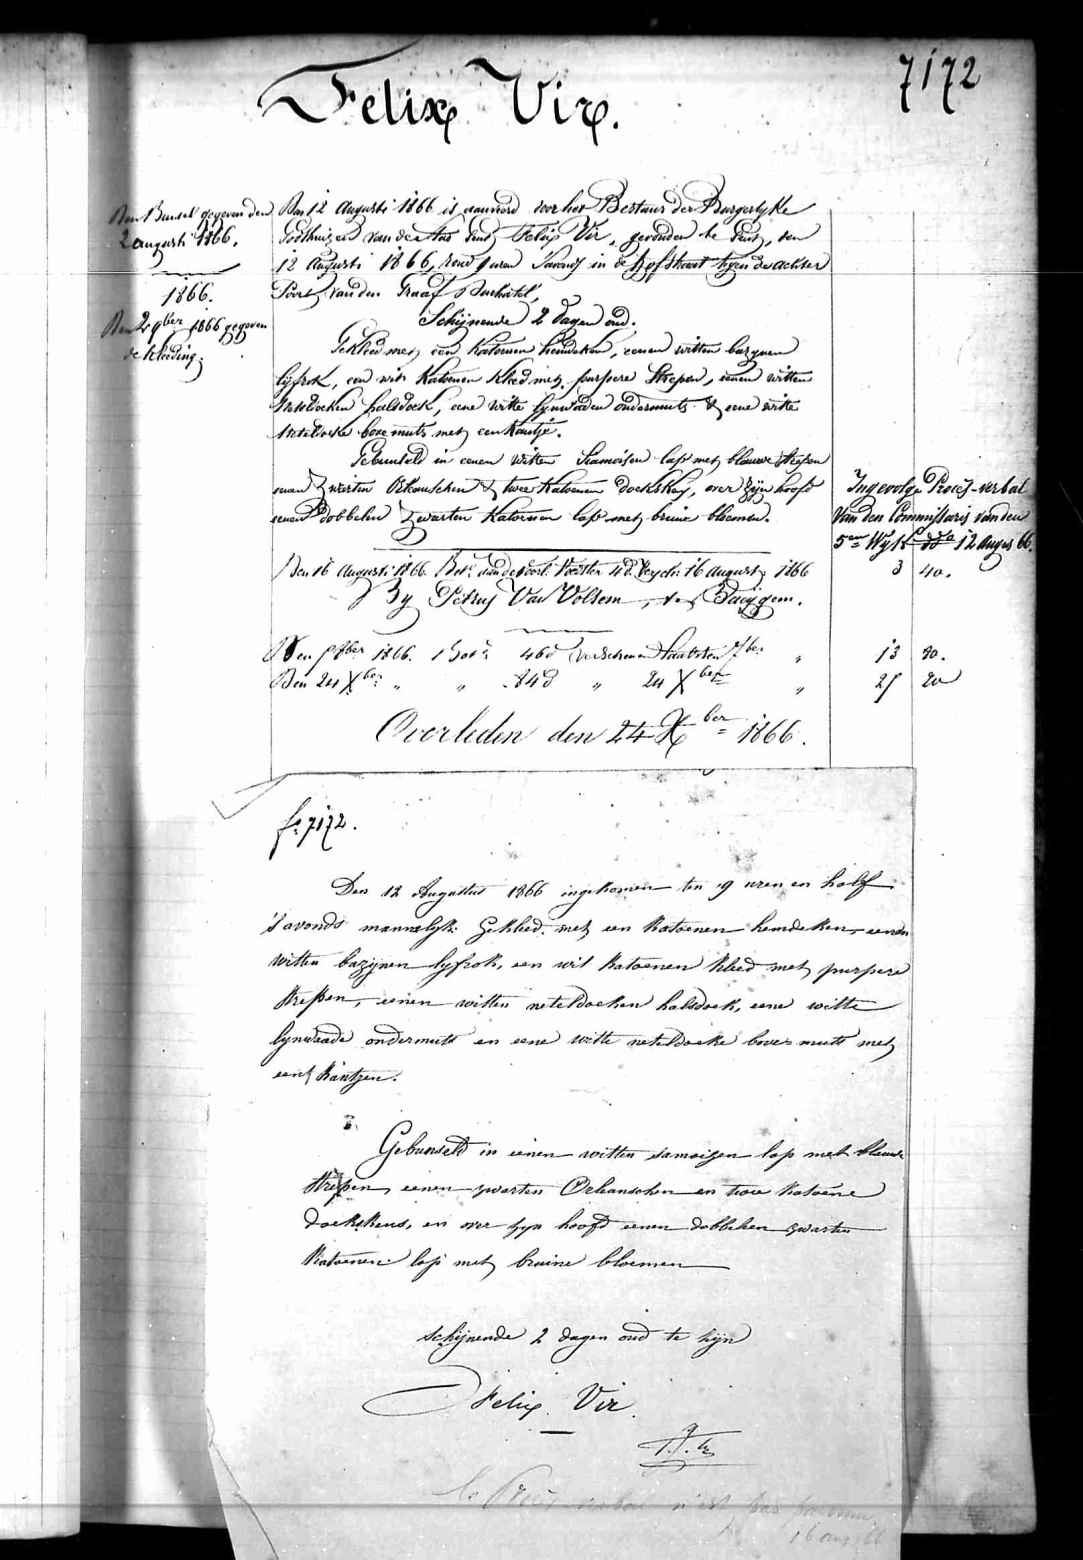 7172
Felix Vir.
Den Bunsel gegeven den
2 augusti 1866.
1866.
Den 2 9ber 1866 gegeven
de kleeding.
Den 12 Augusti 1866 is aanveerd door het Bestuur der Burgerlyke
Godshuizen van der Stad Gent, Felix Vir, gevonden te Gent, den
12 Augusti 1866, rond uren 'savonds in de hofstraat tegen de achter
Poort van den Graaf
Schynende 2 dagen oud.
Gekleed met een Katoenen hemdeken, eenen witten bazynen
lyfrok, een wit Katoenen Kleed met purpere Strepen, eenen witten
Neteldoeken halsdoek, eene witte lynwaden ondermuts & eene witte
neteldoeke bovenmuts met een Kantje.
Gebunseld in eenen witten Siamoisen lap met blauwe Strepen
eenen zwarten Orleanschen & twee Katoenen doekskens, over zyn hoofd
eenen dobbelen zwarten Katoenen lap met bruine bloemen.
Ingevolge Proces-verbal
van den Commissaris van den
5en Wyk 12 Augus 66.
Den 16 Augusti 1866. 16 augusty 1866 3 40.
By Petrus Van Volsem, te Paeygem.
Den 1866. 46d verschenen 7ber " 13 80.
Den 24 Xber " " 84d " 24 Xber " 25 20
Overleden den 24 Xber 1866.
fo 7172.
Den 12 Augustus 1866 ingekomen ten 9 uren en half
's avonds mannelyk. Gekleed met een Katoenen hemdeken, eenen
witten bazynen lyfrok, een wit Katoenen kleed met purpere
strepen, eenen witten neteldoeken halsdoek, eene witte
lynwaade ondermuts en eene witte neteldoeke boven muts met
een Kantjen.
Gebunseld in eenen witten samoizen lap met blauwe
strepen, eenen zwarten Orleanschen en twee katoene
doekskens, en over zyn hoofd eenen dobbelen zwarten
Katoenen lap met bruine bloemen
schynende 2 dagen oud te zyn
Felix Vir.
le Procès-verbal n'est pas
16 aug 66